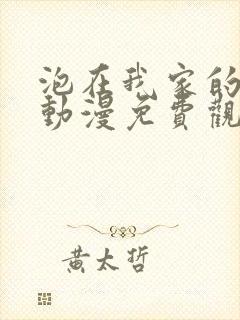 泡在我家的
動漫免費觀
黃太哲